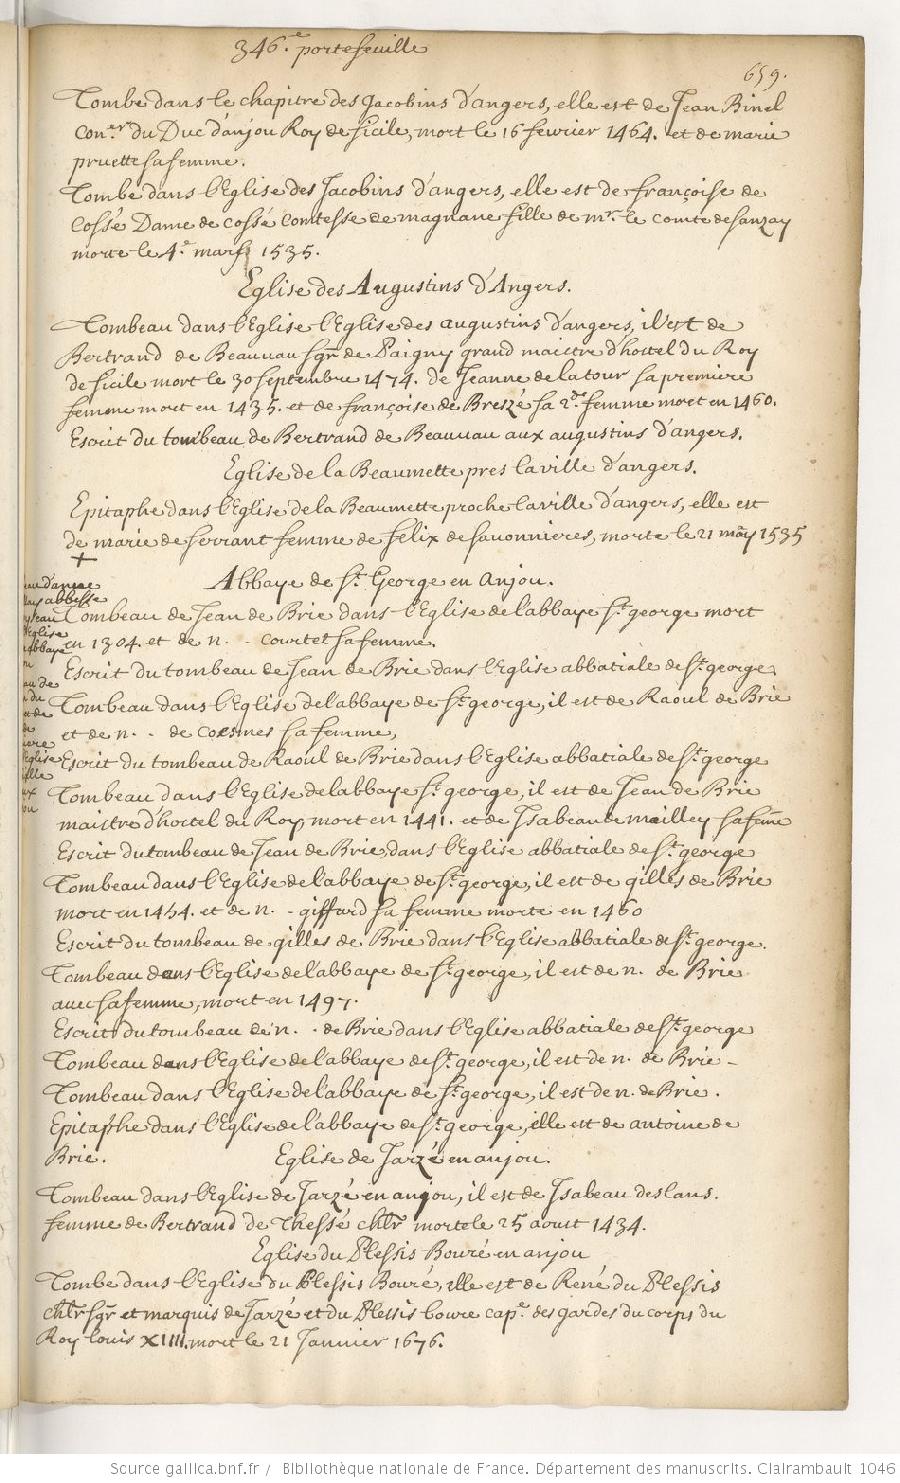 346.e portefeuille
659.
Tombe dans le chapitre des Jacobins d'angers, elle est de Jean Binel
con.er du Duc d'anjou Roy de sicile, mort le 16 fevrier 1464. et de marie
pruette sa femme.
Tombe dans l'Eglise des Jacobins d'angers, elle est de françoise de
Cossé Dame de cossé comtesse de magnane fille de mr. le comte de sanzay
morte le 4.e mars 1535.
Eglise des Augustins d'Angers.
Tombeau dans l'Eglise l'Eglise des augustins d'angers, il est de
Bertrand de Beauvau sgr. de Paigny grand maistre d'hostel du Roy
de sicile mort le 30 septembre 1474. de Jeanne de la tour sa premiere
femme mort en 1435. et de françoise de Breszé sa 2.de femme mort en 1460.
Escrit du tombeau de Bertrand de Beauvau aux augustins d'angers.
Eglise de la Beaumette pres la ville d'angers.
Epitaphe dans l'Eglise de la Beaumette proche la ville d'angers, elle est
de marie de serrant femme de felix de savonnieres, morte le 21 may 1535
+
Abbaye de St. George en anjou.
abbesse
Tombeau de Jean de Brie dans l'Eglise de l'abbaye St. george mort
en 1304. et de n. - courtet sa femme.
Escrit du tombeau de Jean de Brie dans l'Eglise abbatiale de St. george
Tombeau dans l'Eglise de l'abbaye de St. george, il est de Raoul de Brie
et de n. - de coesmes sa femme,
Escrit du tombeau de Raoul de Brie dans l'Eglise abbatiale de St. george
Tombeau dans l'Eglise de l'abbaye St. george, il est de Jean de Brie
maistre d'hostel du Roy, mort en 1441. et de Isabeau de mailley sa fame
Escrit du tombeau de Jean de Brie, dans l'Eglise abbatiale de St. george
Tombeau dans l'Eglise de l'abbaye de St. george, il est de gilles de Brie
mort en 1454. et de n. - giffard sa femme morte en 1460
Escrit du tombeau de gilles de Brie dans l'Eglise abbatiale de St. george.
Tombeau dans l'Eglise de l'abbaye de St. george, il est de n. de Brie
avec sa femme, mort en 1497.
Escrit du tombeau de n. - de Brie dans l'Eglise abbatiale de St. george
Tombeau dans l'Eglise de l'abbaye de St. george, il est de n. de Brie -
Tombeau dans l'Eglise de l'abbaye de St. george, il est de n. de Brie.
Epitaphe dans l'Eglise de l'abbaye de St. george, elle est de antoine de
Brie.
Eglise de Jarzé en anjou.
Tombeau dans l'Eglise de Jarzé en anjou, il est de Isabeau des lans.
femme de Bertrand de Thessé chlr. morte le 25 aoust 1434.
Eglise du Plessis Bouré en anjou
Tombe dans l'Eglise du Plessis Bouré, elle est de René du Plessis
chlr sgr et marquis de Jarzé et du Plessis boure cap.e des gardes du corps du
Roy louis XIIII. mort le 21 Janvier 1676.
Source gallica.bnf.fr / Bibliothèque nationale de France. Département des manuscrits. Clairambault 1046